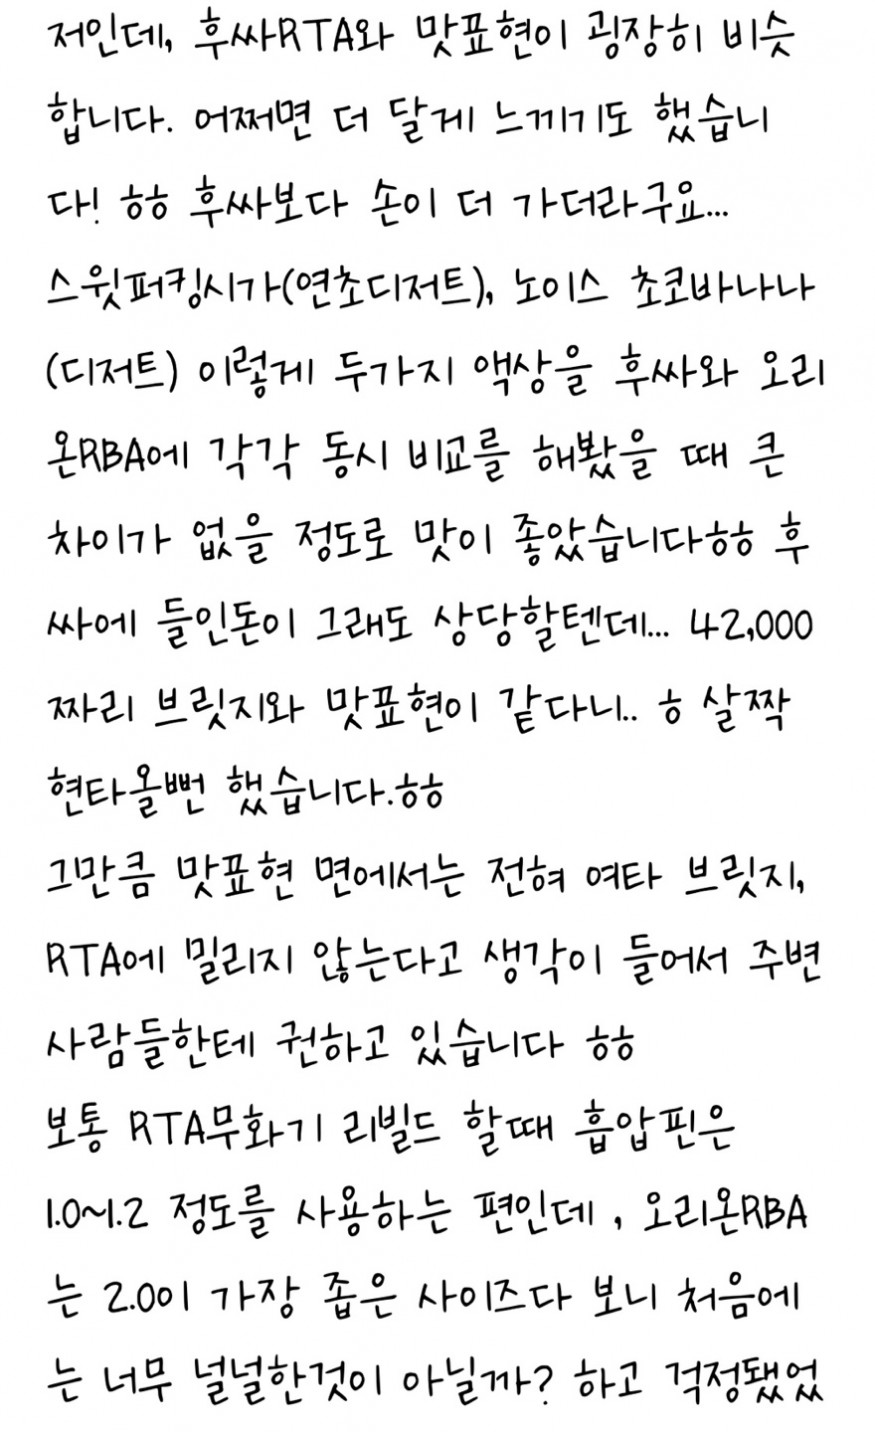 저인데, 후싸RTA와 맛표현이 굉장히 비슷
합니다. 어쩌면 더 달게 느끼기도 했습니
다! ㅎㅎ 후싸보다 손이 더 가더라구요...
스윗퍼킹시가(연초디저트), 노이스 초코바나나
(디저트) 이렇게 두가지 액상을 후싸와 오리
온RBA에 각각 동시 비교를 해봤을 때 큰
차이가 없을 정도로 맛이 좋았습니다ㅎㅎ 후
싸에 들인돈이 그래도 상당할텐데... 42,000
짜리 브릿지와 맛표현이 같다니.. ㅎ 살짝
현타올뻔 했습니다.ㅎㅎ
그만큼 맛표현 면에서는 전혀 여타 브릿지,
RTA에 밀리지 않는다고 생각이 들어서 주변
사람들한테 권하고 있습니다 ㅎㅎ
보통 RTA무화기 리빌드 할때 흡압핀은
1.0~1.2 정도를 사용하는 편인데 , 오리온RBA
는 2.0이 가장 좁은 사이즈다 보니 처음에
는 너무 널널한것이 아닐까? 하고 걱정됐었